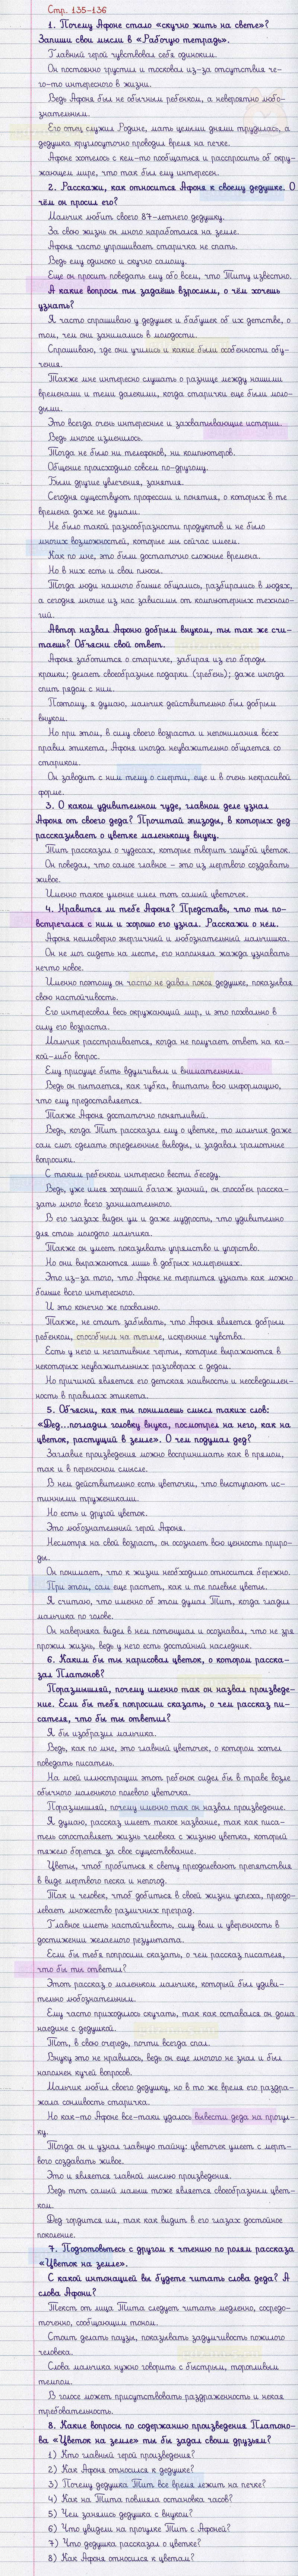 Стр. 135-136
1. Почему Афоне стало «скучно жить на свете»?
Запиши свои мысли в «Рабочую тетрадь».
Главный герой чувствовал себя одиноким.
Он постоянно грустил и тосковал из-за отсутствия че-
го-то интересного в жизни.
Ведь Афоня был не обычным ребенком, а невероятно любо-
знательным.
Его отец служил Родине, мать целыми днями трудилась, а
дедушка круглосуточно проводил время на печке.
Афоне хотелось с кем-то пообщаться и расспросить об окру-
жающем мире, что так был ему интересен.
2. Расскажи, как относится Афоня к своему дедушке. О
чём он просил его?
Мальчик любит своего 87-летнего дедушку.
За свою жизнь он много наработался на земле.
Афоня часто упрашивает старичка не спать.
Ведь ему одиноко и скучно самому.
Еще он просит поведать ему обо всем, что Титу известно.
А какие вопросы ты задаёшь взрослым, о чём хочешь
узнать?
Я часто спрашиваю у дедушек и бабушек об их детстве, о
том, чем они занимались в молодости.
Спрашиваю, где они учились и какие были особенности обу-
чения.
Также мне интересно слушать о разнице между нашими
временами и теми далекими, когда старички еще были моло-
дыми.
Это всегда очень интересные и захватывающие истории.
Ведь многое изменилось.
Тогда не было ни телефонов, ни компьютеров.
Общение происходило совсем по-другому.
Были другие увлечения, занятия.
Сегодня существуют профессии и понятия, о которых в те
времена даже не думали.
Не было такой разнообразности продуктов и не было
многих возможностей, которые мы сейчас имеем.
Как по мне, это были достаточно сложные времена.
Но в них есть и свои плюсы.
Тогда люди намного больше общались, разбирались в людях,
а сегодня многие из нас зависимы от компьютерных техноло-
гий.
Автор назвал Афоню добрым внуком, ты так же счи-
таешь? Объясни свой ответ.
Афоня заботится о старичке, забирая из его бороды
крошки; делает своеобразные подарки (гребень); даже иногда
спит рядом с ним.
Поэтому, я думаю, мальчик действительно был добрым
внуком.
Но при этом, в силу своего возраста и непонимания всех
правил этикета, Афоня иногда неуважительно общается со
стариком.
Он заводит с ним тему о смерти, еще и в очень некрасивой
форме.
3. О каком удивительном чуде, главном деле узнал
Афоня от своего деда? Прочитай эпизоды, в которых дед
рассказывает о цветке маленькому внуку.
Тит рассказал о чудесах, которые творит голубой цветок.
Он поведал, что самое главное – это из мертвого создавать
живое.
Именно такое умение имел тот самый цветочек.
4. Нравится ли тебе Афоня? Представь, что ты по-
встречался с ним и хорошо его узнал. Расскажи о нем.
Афоня неимоверно энергичный и любознательный мальчишка.
Он не мог сидеть на месте, его наполняла жажда узнавать
нечто новое.
Именно поэтому он часто не давал покоя дедушке, показывая
свою настойчивость.
Его интересовал весь окружающий мир, и это похвально в
силу его возраста.
Мальчик расстраивается, когда не получает ответ на ка-
кой-либо вопрос.
Ему присуще быть вдумчивым и внимательным.
Ведь он пытается, как губка, впитать всю информацию,
что ему предоставляется.
Также Афоня достаточно понятливый.
Ведь, когда Тит рассказал ему о цветке, то мальчик даже
сам смог сделать определенные выводы, и задавал грамотные
вопросики.
С таким ребенком интересно вести беседу.
Ведь, уже имея хороший багаж знаний, он способен расска-
зать много всего занимательного.
В его глазах виден ум и даже мудрость, что удивительно
для столь молодого мальчика.
Также он умеет показывать упрямство и упорство.
Но они выражаются лишь в добрых намерениях.
Это из-за того, что Афоне не терпится узнать как можно
больше всего интересного.
И это конечно же похвально.
Также, не стоит забывать, что Афоня является добрым
ребенком, способным на теплые, искренние чувства.
Есть у него и негативные черты, которые выражаются в
некоторых неуважительных разговорах с дедом.
Но причиной является его детская наивность и неосведомлен-
ность в правилах этикета.
5. Объясни, как ты понимаешь смысл таких слов:
«Дед...погладил головку внука, посмотрел на него, как на
цветок, растущий в земле». О чем подумал дед?
Заглавие произведения можно воспринимать как в прямом,
так и в переносном смысле.
В нем действительно есть цветочки, что выступают ис-
тинными тружениками.
Но есть и другой цветок.
Это любознательный герой Афоня.
Несмотря на свой возраст, он осознает всю ценность приро-
ды.
Он понимает, что к жизни необходимо относится бережно.
При этом, сам еще растет, как и те полевые цветы.
Я считаю, что именно об этом думал Тит, когда гладил
мальчика по голове.
Он наверняка видел в нем потенциал и осознавал, что не зря
прожил жизнь, ведь у него есть достойный наследник.
6. Каким бы ты нарисовал цветок, о котором расска-
зал Платонов?
Поразмышляй, почему именно так он назвал произведе-
ние. Если бы тебя попросили сказать, о чем рассказ пи-
сателя, что бы ты ответил?
Я бы изобразил мальчика.
Ведь, как по мне, это главный цветочек, о котором хотел
поведать писатель.
На моей иллюстрации этот ребенок сидел бы в траве возле
обычного маленького полевого цветочка.
Поразмышляй, почему именно так он назвал произведение.
Я думаю, рассказ имеет такое название, так как писа-
тель сопоставляет жизнь человека с жизнью цветка, который
тяжело борется за свое существование.
Цветы, чтоб пробиться к свету преодолевают препятствия
в виде мертвого песка и непогод.
Так и человек, чтоб добиться в своей жизни успеха, преодо-
левает множество различных преград.
Главное иметь настойчивость, силу воли и уверенность в
достижении желаемого результата.
Если бы тебя попросили сказать, о чем рассказ писателя,
что бы ты ответил?
Этот рассказ о маленьком мальчике, который был удиви-
тельно любознательным.
Ему часто приходилось скучать, так как оставался он дома
наедине с дедушкой.
Тот, в свою очередь, почти всегда спал.
Внуку это не нравилось, ведь он еще многого не знал и был
наполнен кучей вопросов.
Мальчик любил своего дедушку, но в то же время его раздра-
жала сонливость старичка.
Но как-то Афоне все-таки удалось вывести деда на прогул-
ку.
Тогда он и узнал главную тайну: цветочек умеет с мерт-
вого создавать живое.
Это и является главной мыслью произведения.
Ведь тот самый малыш тоже является своеобразным цвет-
ком.
Дед гордится им, так как видит в его глазах достойное
поколение.
7. Подготовьтесь с другом к чтению по ролям рассказа
«Цветок на земле».
С какой интонацией вы будете читать слова деда? А
слова Афони?
Текст от лица Тита следует читать медленно, сосредо-
точенно, сообщающим тоном.
Стоит делать паузы, показывать задумчивость пожилого
человека.
Слова мальчика нужно говорить с быстрым, торопливым
темпом.
В голосе может присутствовать раздраженность и некая
требовательность.
8. Какие вопросы по содержанию произведения Платоно-
ва «Цветок на земле» ты бы задал своим друзьям?
1) Кто главный герой произведения?
2) Как Афоня относился к дедушке?
3) Почему дедушка Тит все время лежит на печке?
4) Как на Тита повлияла остановка часов?
5) Чем занялись дедушка с внуком?
6) Что увидели на прогулке Тит с Афоней?
7) Что дедушка рассказал о цветке?
8) Как Афоня относился к цветам?